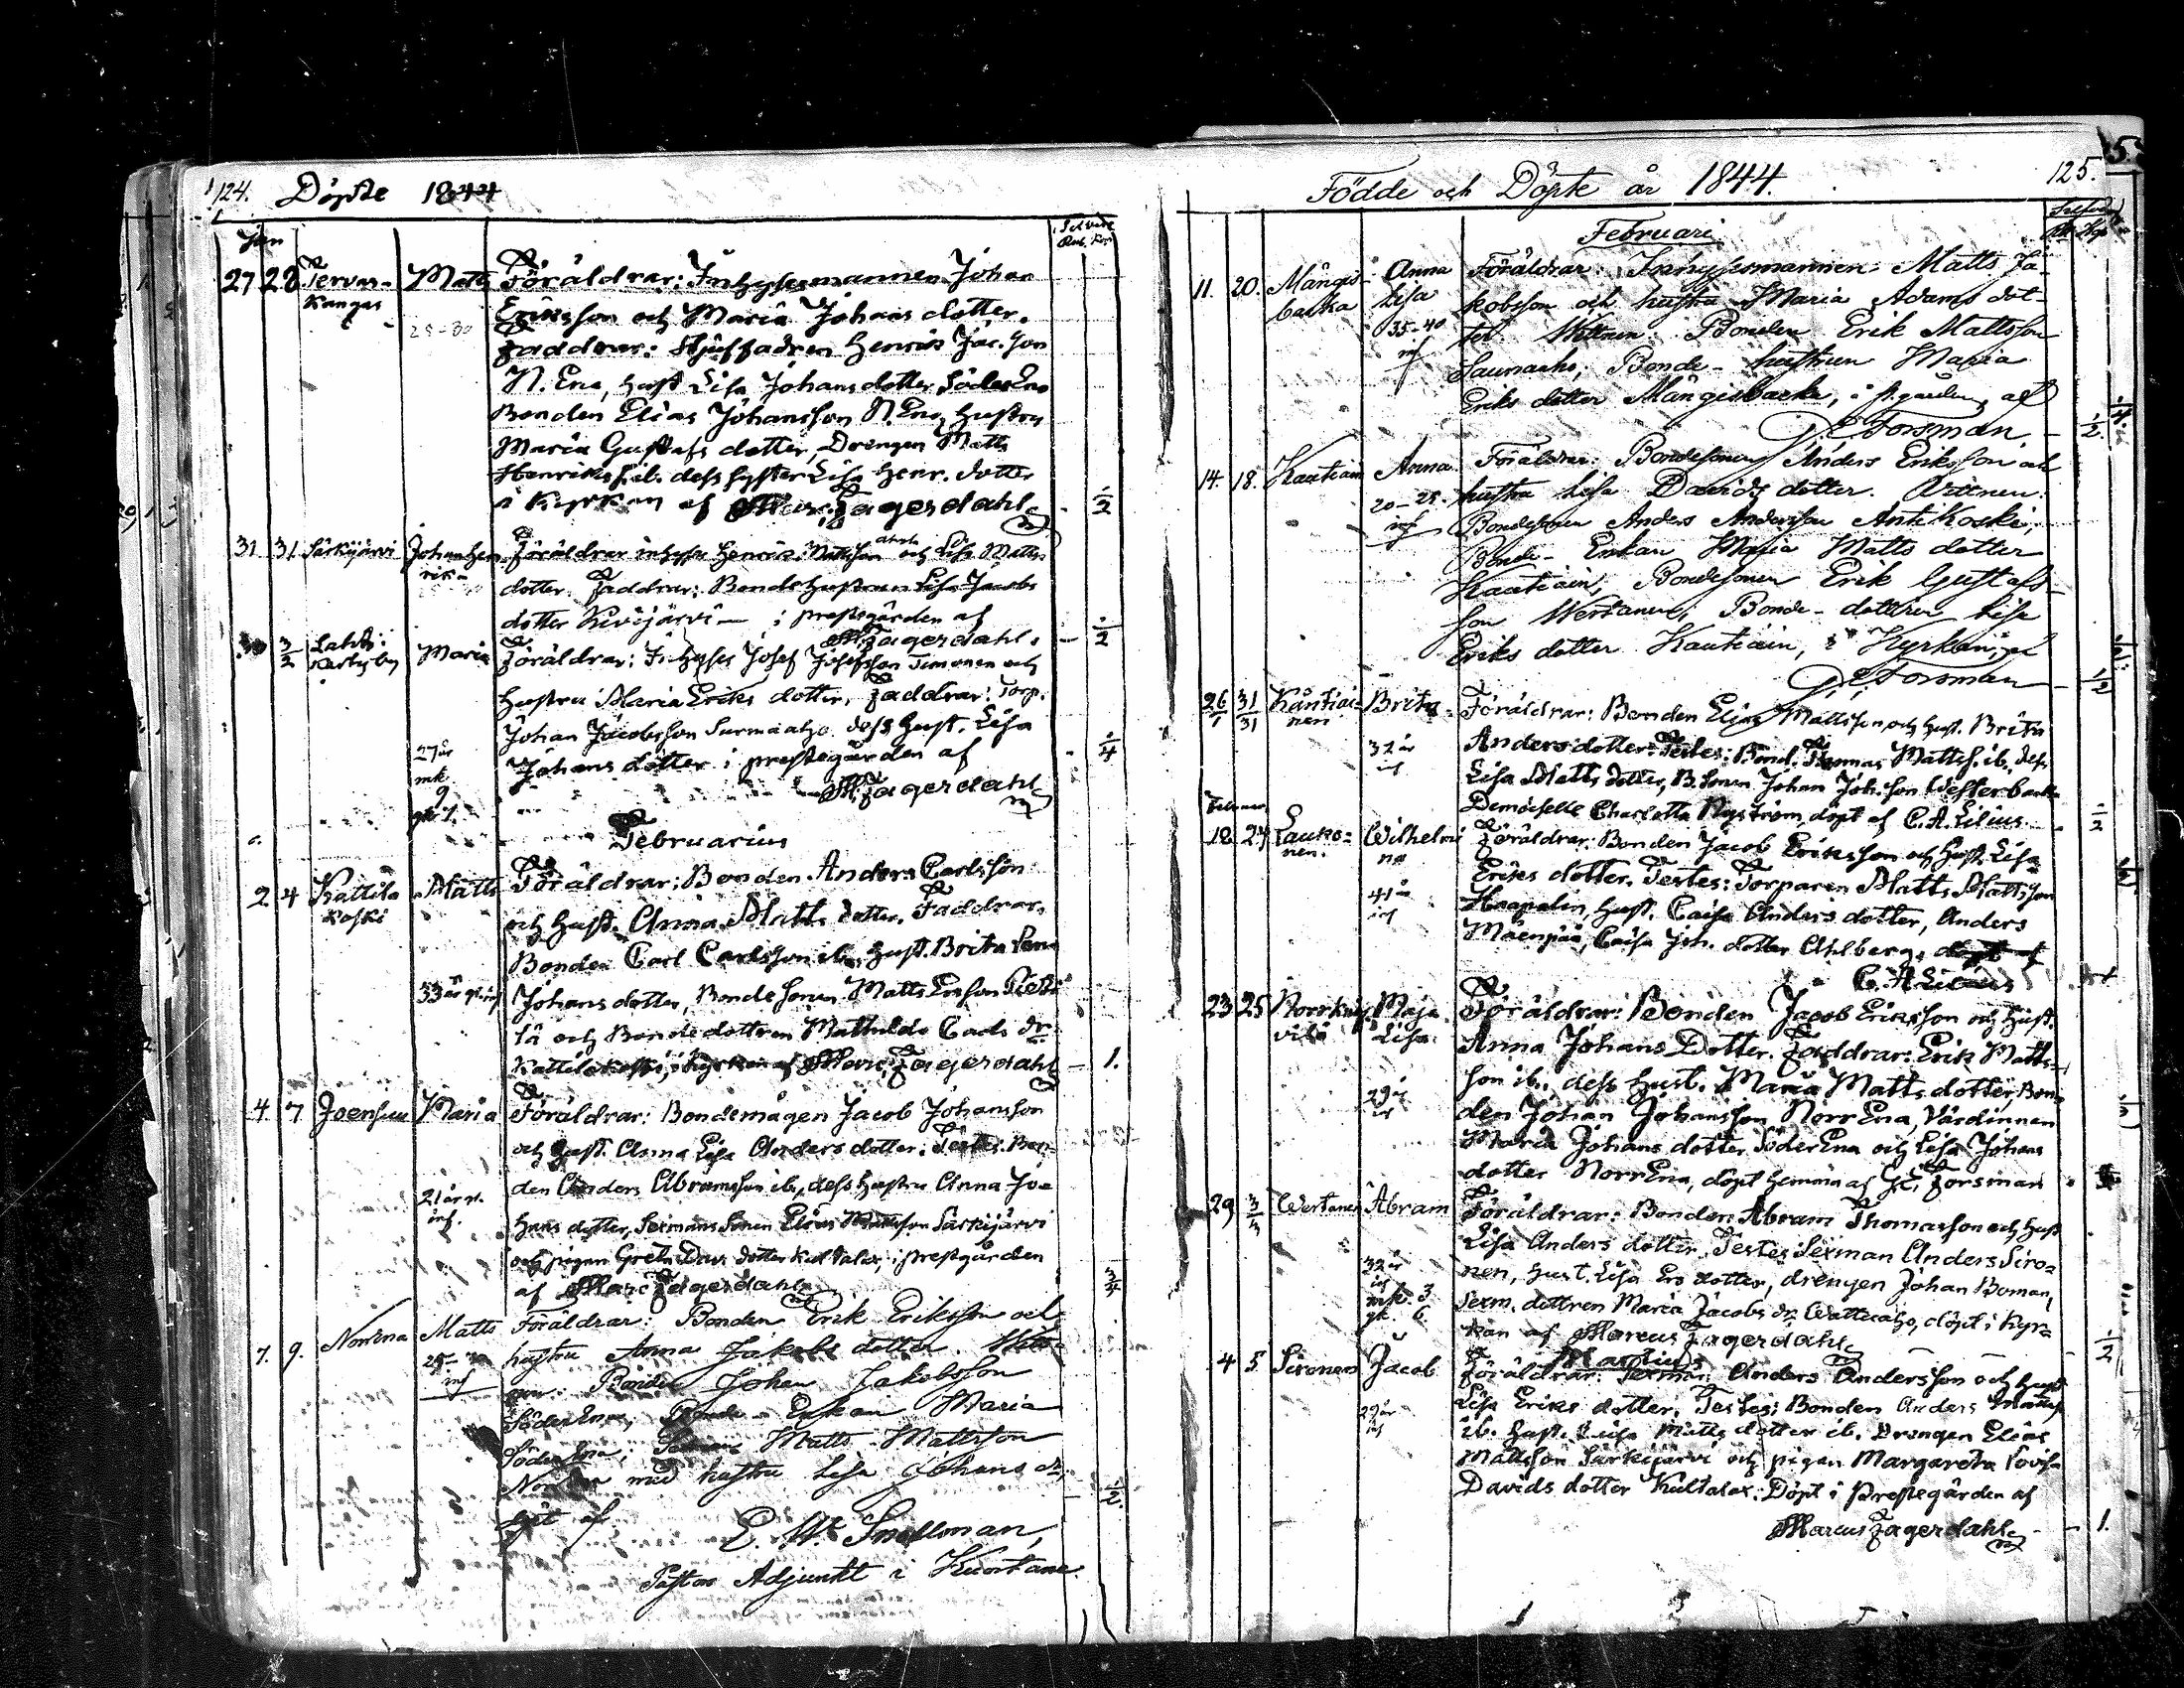 124. Döpte 1844
Jan
27 28 Tervas- Matts Föräldrar: Inhysesmannen Johan
kangas Eriksson och Maria Johans dotter.
25-30 Faddrar: Styffadren Henrik Jac. son
N. Ena, Hust. Lisa Johans dotter Söder Ena
Bonden Elias Johansson N. Ena, Hustru
Maria Gustafs dotter, Drengen Matts
Henrikss. ib. dess syster Lisa Henr. dotter
i Kyrkan af Marc. Fagerdahl 1/2
31 31 Särkijärvi Johan Hen Föräldrar inhyses Henrik Mattsson och Lisa Matts
rik dotter. Faddrar: Bonde Hustrun Lisa Jacobs
dotter Kivijärvi i prestegården af
M Fagerdahl. 1/2
3/2 Lahti Maria Föräldrar: Inhyses Josef Josefsson Timonen och
Hustru Maria Eriks dotter, Faddrar: Torp.
Johan Jacobsson Surmaaho dess Hust. Lisa
27 år Johans dotter i prestegården af 1/4
mk M. Fagerdahl
9
gk 7.
Februarius
2 4 Kattila Matts Föräldrar: Bonden Anders Carlsson
koski och Hust. Anna Matts dotter. Faddrar,
Bonden Carl Carlsson ib. Hust. Brita Lena
33 år Johans dotter, Bonde sonen Matts Ersson
lä och Bonde dottren Mathilda Carls dr
Kattilakoski, i Kyrkan af Marc Fagerdahl 1.
4 7 Joensuu Maria Föräldrar: Bondemågen Jacob Johansson
och Hust. Anna Lisa Anders dotter. Testes: Bon-
21 år den Anders Abramsson ib., dess Hustru Anna Jo-
inf. hans dotter, Sexmans Sonen Elias Mattsson Särkijärvi
och pigan Greta Dav. dotter Kultalax, i prestgården
af Marc Fagerdahl 3/4
7. 9. Norrena Matts Föräldrar: Bonden Erik Eriksson och
25-30 hustru Anna Jakobs dotter. Witt-
inf nen: Bonden Johan Jakobsson
Söder Ena, Bonde-Enkan Maria
Söder Ena, Matts Mattsson
Norrena med hustru Lisa Johans dr,
döpt af 1/2.
E. W. Snellman,
Pastors Adjunkt i Kuortane
Födde och Döpte år 1844. 125.
Februari
11. 20. Mångis- Anna Föräldrar: Inhysesmannen Matts Ja-
backa Lisa kobsson och hustru Maria Adams dot-
35-40 ter. Wittnen: Bonden Erik Mattsson
inf Saunaaho, Bonde-hustrun Maria
Eriks dotter Mångisbacka, i st.gården, af
G. E. Forsman. 1/2.
14. 18. Kautiain Anna Föräldrar: Bondesonen Anders Eriksson och
20-25. hustru Lisa Davids dotter. Wittnen:
inf Bondesonen Anders Andersson Antikoski,
Bonde-Enkan Maria Matts dotter
Kautiain, Bondesonen Erik Gustafs-
son Wertanen, Bonde-dottren Lisa
Eriks dotter Kautiain, i Kyrkan, af
G. E. Forsman 1/2
26/1 31/31 Kautiai- Brita Föräldrar: Bonden Elias Mattsson och Hust. Brita
nen
32 år Anders dotter. Testes: Bond. Thomas Mattss. ib. dess
inf Lisa Matts dotter, B. Sonen Johan Joh. son Westerbacka
Demoiselle Charlotta Nyström, döpt af C. A. Lilius. 1/2
18 24 Lauko- Wilhelmi Föräldrar: Bonden Jacob Eriksson och Hust. Lisa
nen. na Eriks dotter. Testes: Torparen Matts Matts son
41 år Haapalin, Hust. Caisa Anders dotter, Anders
inf Mäenpää, Caisa Joh. dotter Ahlberg, döpt af
C. A Lilius
23 25 Maja Föräldrar: Bonden Jacob Eriksson och Hust.
Lisa Anna Johans Dotter. Faddrar: Erik Matts-
29 år son ib., dess Hust. Maria Matts dotter, Bon-
inf den Johan Johansson Norr Ena, Värdinnan
Maria Johans dotter Söder Ena och Lisa Johans
dotter Norr Ena, döpt hemma af G. E. Forsman
29 3/3 Wertanen Abram Föräldrar: Bonden Abram Thomasson och Hust
Lisa Anders dotter, Testes: Sexman Anders Siro-
32 år nen, Hust. Lisa Ers dotter, drengen Johan Boman,
inf
mk. 3 Sexm. dottren Maria Jacobs dr, Wattuaho, döpt i Kyr-
gk. 6. kan af Marcus Fagerdahl 1/2
Martius
4 5 Sironen Jacob Föräldrar: Sexman Anders Andersson och Hust
29 år Lisa Eriks dotter, Testes: Bonden Anders Mattss
inf ib. Hust. Lisa Matts dotter ib. Drengen Elias
Mattsson Särkijärvi och pigan Margareta Lovisa
Davids dotter Kultalax: Döpt i Prestegården af
Marcus Fagerdahl 1.